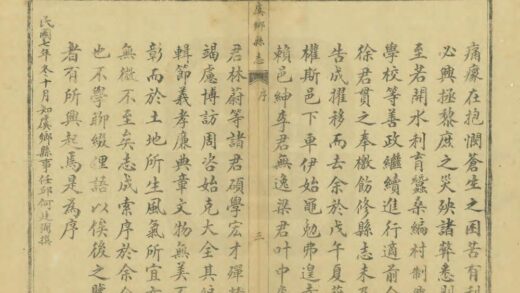 痛瘝在抱憫蒼生之困苦有利
必興拯黎庶之災殃諸弊悉
至若開水利育蠶桑編村制
學校等善政繼續進行適前
徐君貫之奉檄飭修縣志未及
告成擢移而去余於戊午夏
權斯邑下車伊始黽勉弗遑
賴邑紳李君無逸梁君叶中
虞鄉縣志
序
三
君林蔚等諸君碩學宏才殫
竭慮博訪周咨始克大全其
輯節義孝廉典章文物無美不
彰而於土地所生風氣所宜
無微不至矣志成索序於余
也不學聊綴俚語以俟後之
者有所興起焉是為序
民國七年冬十月知虞鄉縣事任邱何廷撰